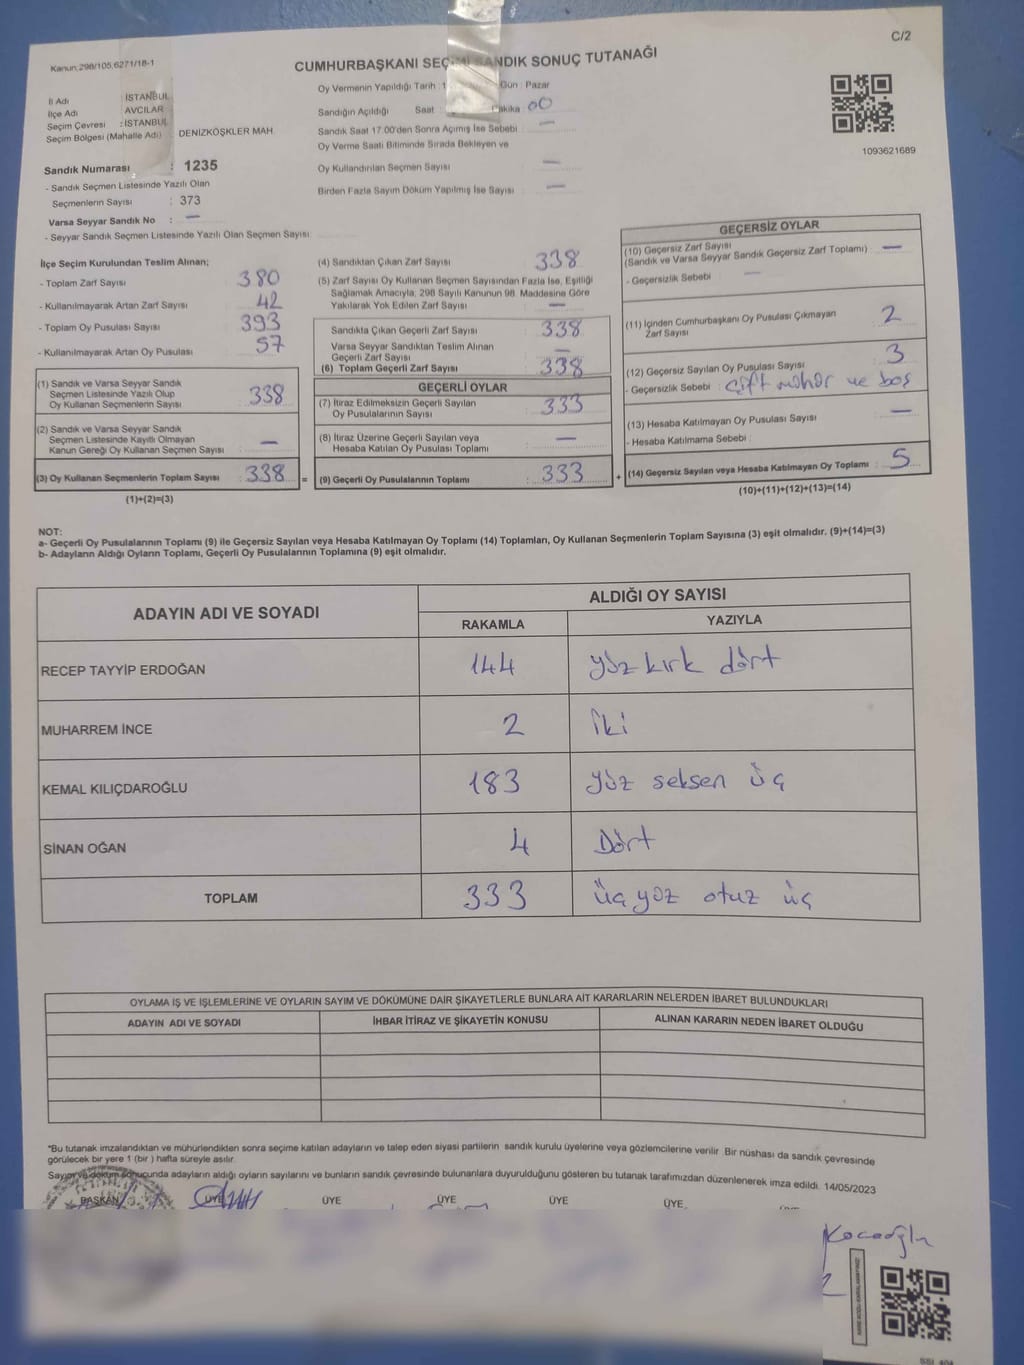 C/2
Kanun,298/105,6271/18-1
CUMHURBAŞKANI SEÇ SANDIK SONUÇ TUTANAĞI
Oy Vermenin Yapıldığı Tarih : Gün : Pazar
İl Adı : İSTANBUL
İlçe Adı : AVCILAR
Seçim Çevresi : İSTANBUL
Seçim Bölgesi (Mahalle Adı) : DENİZKÖŞKLER MAH.
Sandığın Açıldığı Saat : Dakika : 00
Sandık Saat 17.00'den Sonra Açımış İse Sebebi : —
Oy Verme Saati Bitiminde Sırada Bekleyen ve
Oy Kullandırılan Seçmen Sayısı : —
Birden Fazla Sayım Döküm Yapılmış İse Sayısı : —
1093621689
Sandık Numarası : 1235
- Sandık Seçmen Listesinde Yazılı Olan
Seçmenlerin Sayısı : 373
Varsa Seyyar Sandık No : —
- Seyyar Sandık Seçmen Listesinde Yazılı Olan Seçmen Sayısı
İlçe Seçim Kurulundan Teslim Alınan;
- Toplam Zarf Sayısı : 380
- Kullanılmayarak Artan Zarf Sayısı : 42
- Toplam Oy Pusulası Sayısı : 393
- Kullanılmayarak Artan Oy Pusulası : 57
(1) Sandık ve Varsa Seyyar Sandık
Seçmen Listesinde Yazılı Olup
Oy Kullanan Seçmenlerin Sayısı : 338
(2) Sandık ve Varsa Seyyar Sandık
Seçmen Listesinde Kayıtlı Olmayan
Kanun Gereği Oy Kullanan Seçmen Sayısı : —
(3) Oy Kullanan Seçmenlerin Toplam Sayısı : 338 =
(1)+(2)=(3)
(4) Sandıktan Çıkan Zarf Sayısı : 338
(5) Zarf Sayısı Oy Kullanan Seçmen Sayısından Fazla İse, Eşitliği
Sağlamak Amacıyla; 298 Sayılı Kanunun 98. Maddesine Göre
Yakılarak Yok Edilen Zarf Sayısı : —
Sandıkta Çıkan Geçerli Zarf Sayısı : 338
Varsa Seyyar Sandıktan Teslim Alınan
Geçerli Zarf Sayısı : —
(6) Toplam Geçerli Zarf Sayısı : 338
GEÇERLİ OYLAR
(7) İtiraz Edilmeksizin Geçerli Sayılan
Oy Pusulalarının Sayısı : 333
(8) İtiraz Üzerine Geçerli Sayılan veya
Hesaba Katılan Oy Pusulası Toplamı : —
(9) Geçerli Oy Pusulalarının Toplamı : 333 +
GEÇERSİZ OYLAR
(10) Geçersiz Zarf Sayısı
(Sandık ve Varsa Seyyar Sandık Geçersiz Zarf Toplamı) : —
- Geçersizlik Sebebi : —
(11) İçinden Cumhurbaşkanı Oy Pusulası Çıkmayan
Zarf Sayısı : 2
(12) Geçersiz Sayılan Oy Pusulası Sayısı : 3
- Geçersizlik Sebebi : Çift mühür ve boş
(13) Hesaba Katılmayan Oy Pusulası Sayısı : —
- Hesaba Katılmama Sebebi :
(14) Geçersiz Sayılan veya Hesaba Katılmayan Oy Toplamı : 5
(10)+(11)+(12)+(13)=(14)
NOT:
a- Geçerli Oy Pusulalarının Toplamı (9) ile Geçersiz Sayılan veya Hesaba Katılmayan Oy Toplamı (14) Toplamları, Oy Kullanan Seçmenlerin Toplam Sayısına (3) eşit olmalıdır. (9)+(14)=(3)
b- Adayların Aldığı Oyların Toplamı, Geçerli Oy Pusulalarının Toplamına (9) eşit olmalıdır.
ADAYIN ADI VE SOYADI ALDIĞI OY SAYISI
RAKAMLA YAZIYLA
RECEP TAYYİP ERDOĞAN 144 yüz kırk dört
MUHARREM İNCE 2 iki
KEMAL KILIÇDAROĞLU 183 yüz seksen üç
SİNAN OĞAN 4 Dört
TOPLAM 333 üçyüz otuz üç
OYLAMA İŞ VE İŞLEMLERİNE VE OYLARIN SAYIM VE DÖKÜMÜNE DAİR ŞİKAYETLERLE BUNLARA AİT KARARLARIN NELERDEN İBARET BULUNDUKLARI
ADAYIN ADI VE SOYADI İHBAR İTİRAZ VE ŞİKAYETİN KONUSU ALINAN KARARIN NEDEN İBARET OLDUĞU
*Bu tutanak imzalandıktan ve mühürlendikten sonra seçime katılan adayların ve talep eden siyasi partilerin sandık kurulu üyelerine veya gözlemcilerine verilir. Bir nüshası da sandık çevresinde
görülecek bir yere 1 (bir ) hafta süreyle asılır.
Sayım ve döküm sonucunda adayların aldığı oyların sayılarını ve bunların sandık çevresinde bulunanlara duyurulduğunu gösteren bu tutanak tarafımızdan düzenlenerek imza edildi. 14/05/2023
BAŞKAN ÜYE ÜYE ÜYE ÜYE ÜYE